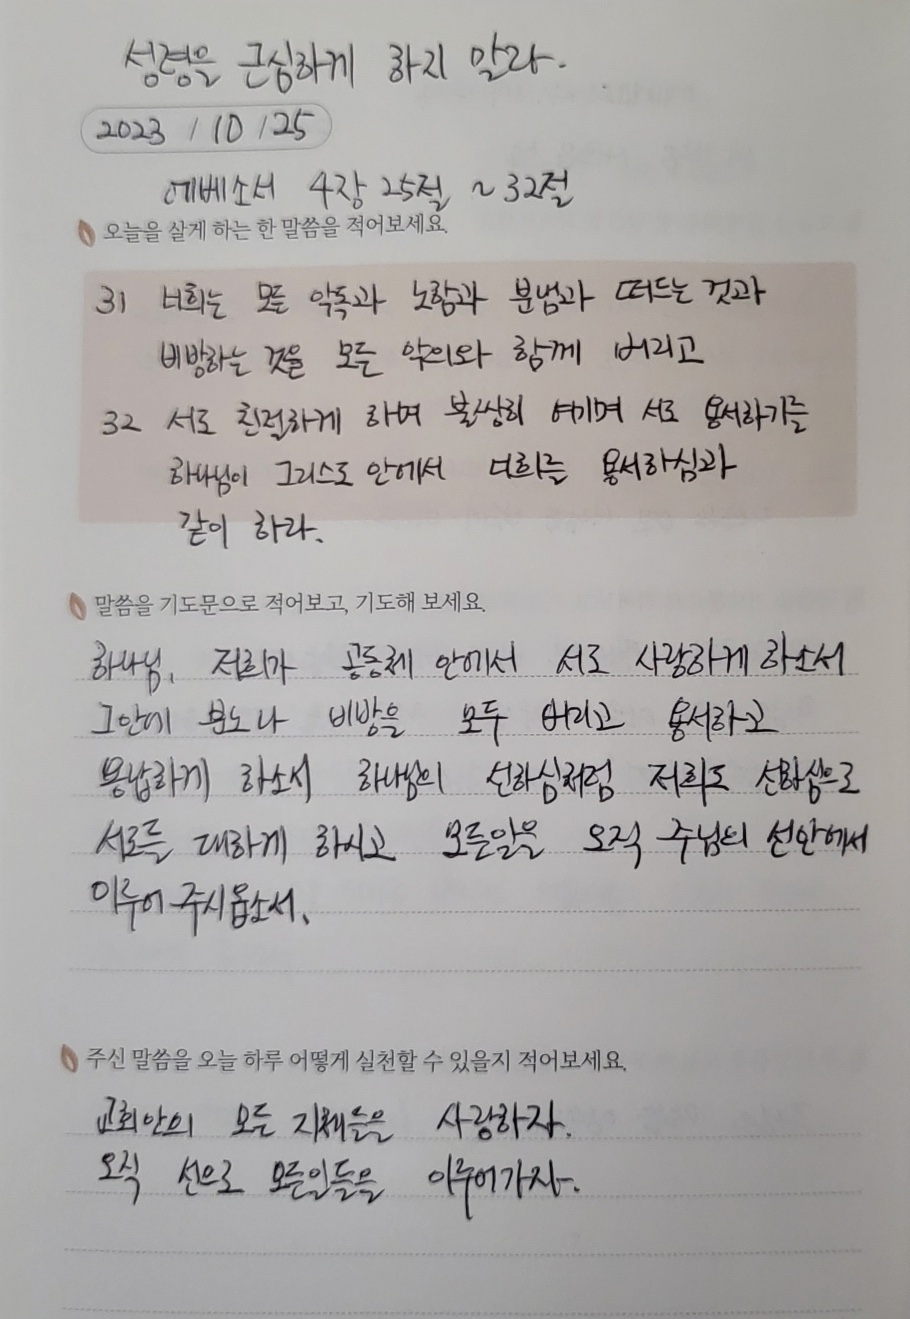 성령을 근심하게 하지 말라.
2023 / 10 / 25
에베소서 4장 25절 ~ 32절
오늘을 살게 하는 한 말씀을 적어보세요.
31 너희는 모든 악독과 노함과 분냄과 떠드는 것과
비방하는 것을 모든 악의와 함께 버리고
32 서로 친절하게 하며 불쌍히 여기며 서로 용서하기를
하나님이 그리스도 안에서 너희를 용서하심과
같이 하라.
말씀을 기도문으로 적어보고, 기도해 보세요.
하나님, 저희가 공동체 안에서 서로 사랑하게 하소서
그안에 분노나 비방을 모두 버리고 용서하고
용납하게 하소서 하나님의 선하심처럼 저희도 선하심으로
서로를 대하게 하시고 모든일을 오직 주님의 선안에서
이루어 주시옵소서.
주신 말씀을 오늘 하루 어떻게 실천할 수 있을지 적어보세요.
교회안의 모든 지체들을 사랑하자.
오직 선으로 모든일들을 이루어가자.